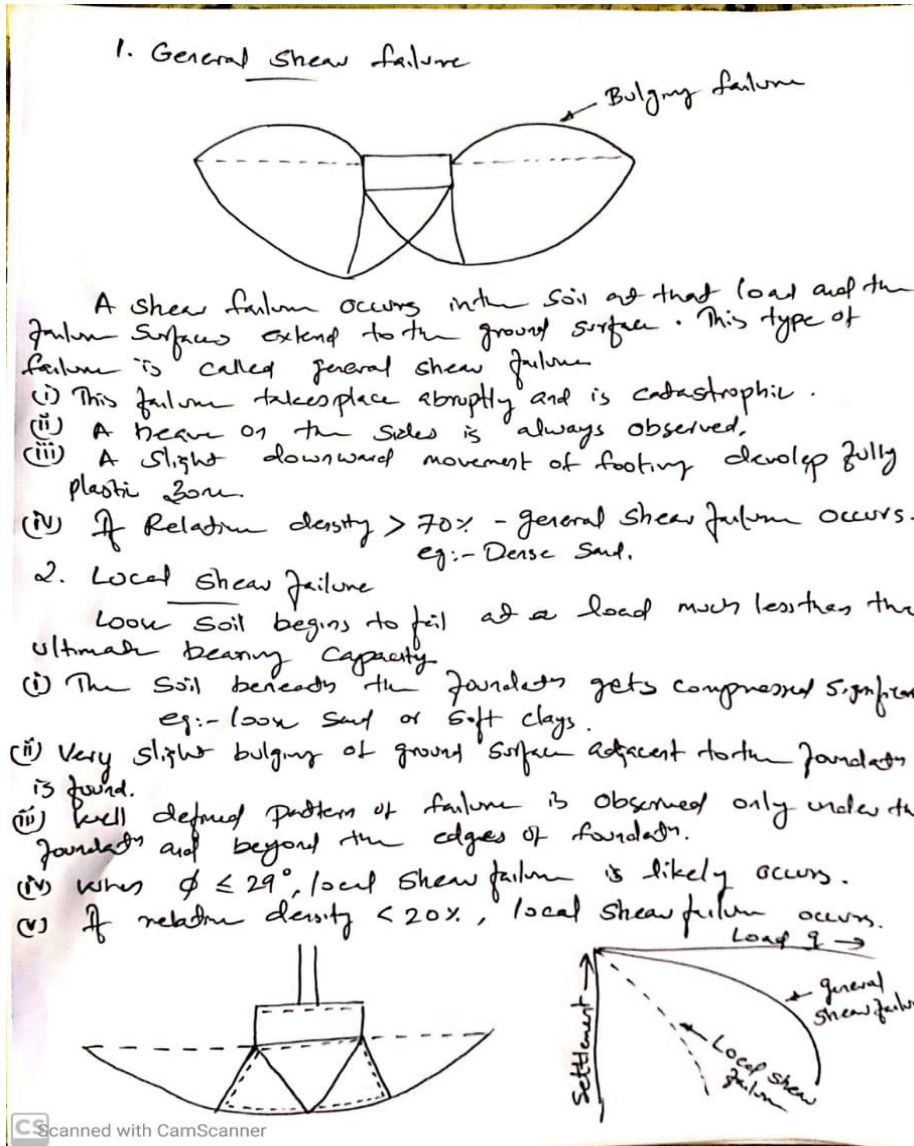 1. General Shear failure
Bulging failure
A shear failure occurs in the soil at that load and the
failure surfaces extend to the ground surface. This type of
failure is called general shear failure
(i) This failure takes place abruptly and is catastrophic.
(ii) A heave on the sides is always observed.
(iii) A slight downward movement of footing develop fully
plastic zone.
(iv) If Relative density > 70% - general shear failure occurs.
eg:- Dense sand.
2. Local Shear failure
Loose soil begins to fail at a load much less than the
ultimate bearing capacity
(i) The soil beneath the foundation gets compressed
eg:- loose sand or soft clays.
(ii) Very slight bulging of ground surface adjacent to the foundation
is found.
(iii) well defined pattern of failure is observed only under the
foundation and beyond the edges of foundation.
(iv) when ϕ ≤ 29°, local shear failure is likely occurs.
(v) If relative density < 20%, local shear failure occurs.
Load q →
Settlement →
general
shear failure
Local shear
failure
CS Scanned with CamScanner